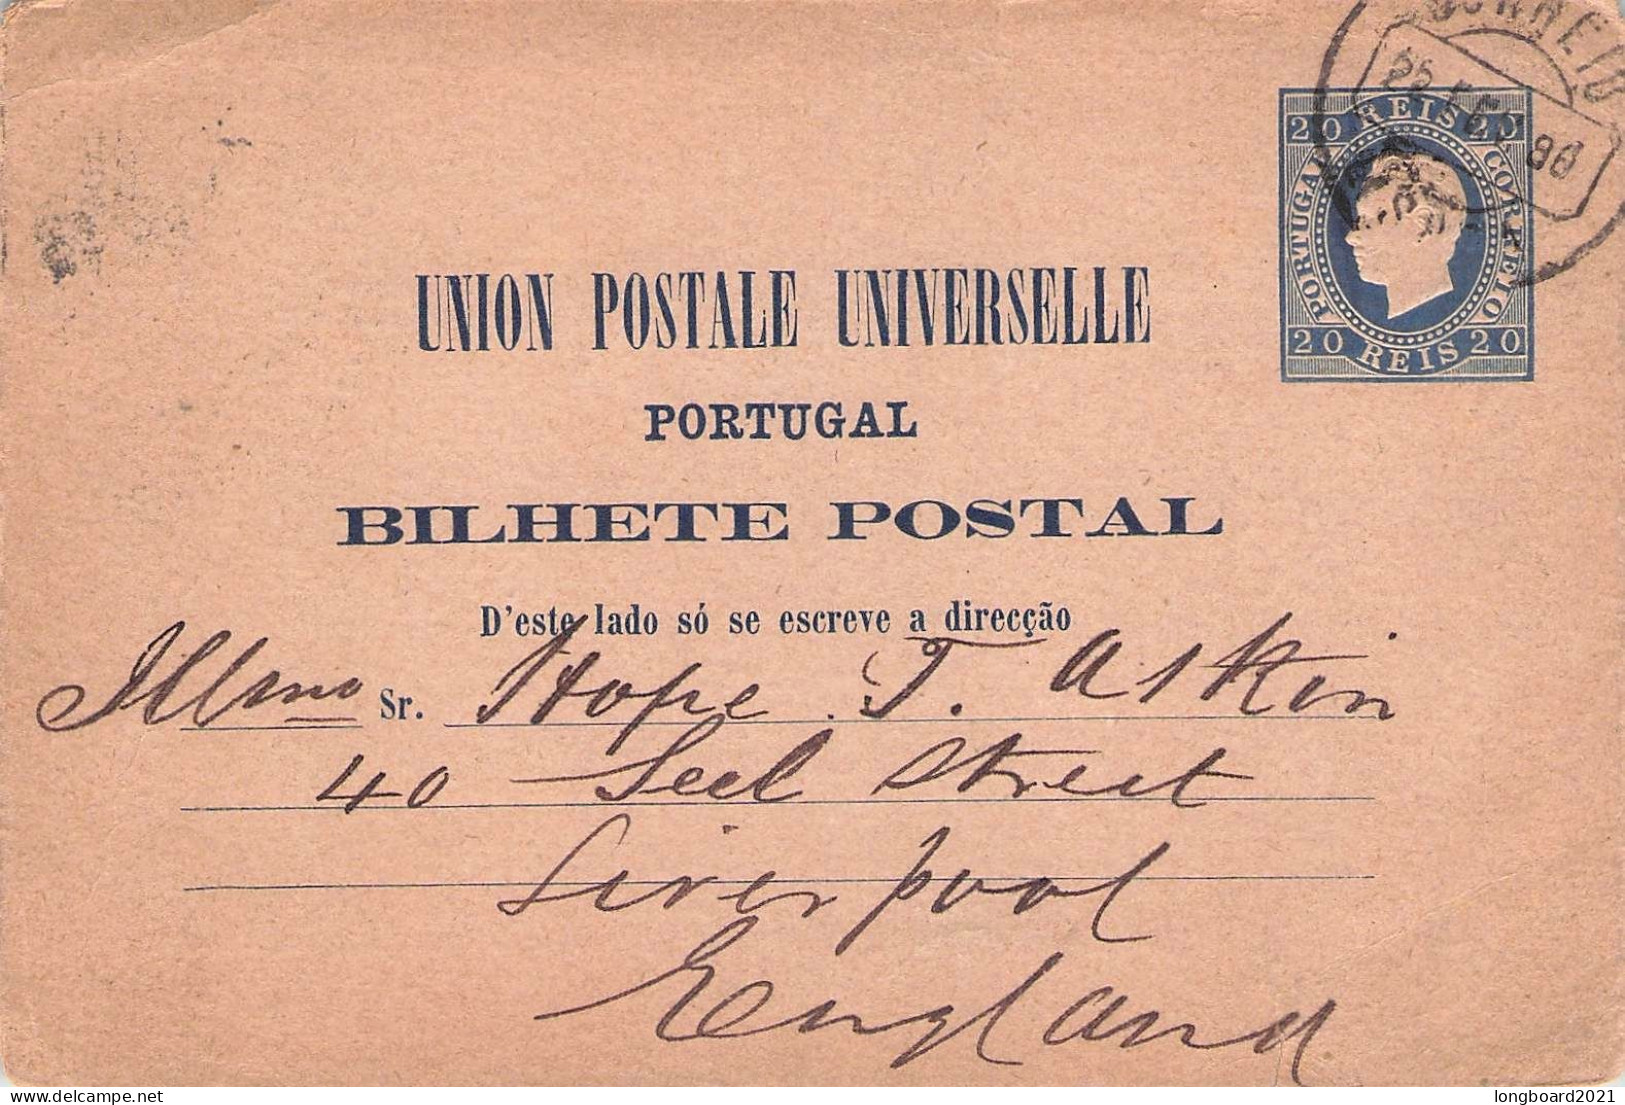 CORREIO
25 FEV 86
20 REIS 20
PORTUGAL CORREIO
20 REIS 20
UNION POSTALE UNIVERSELLE
PORTUGAL
BILHETE POSTAL
D'este lado só se escreve a direcção
Illmo Sr. Hope J. Askin
40 Seel Street
Liverpool
England
delcampe.net
longboard2021